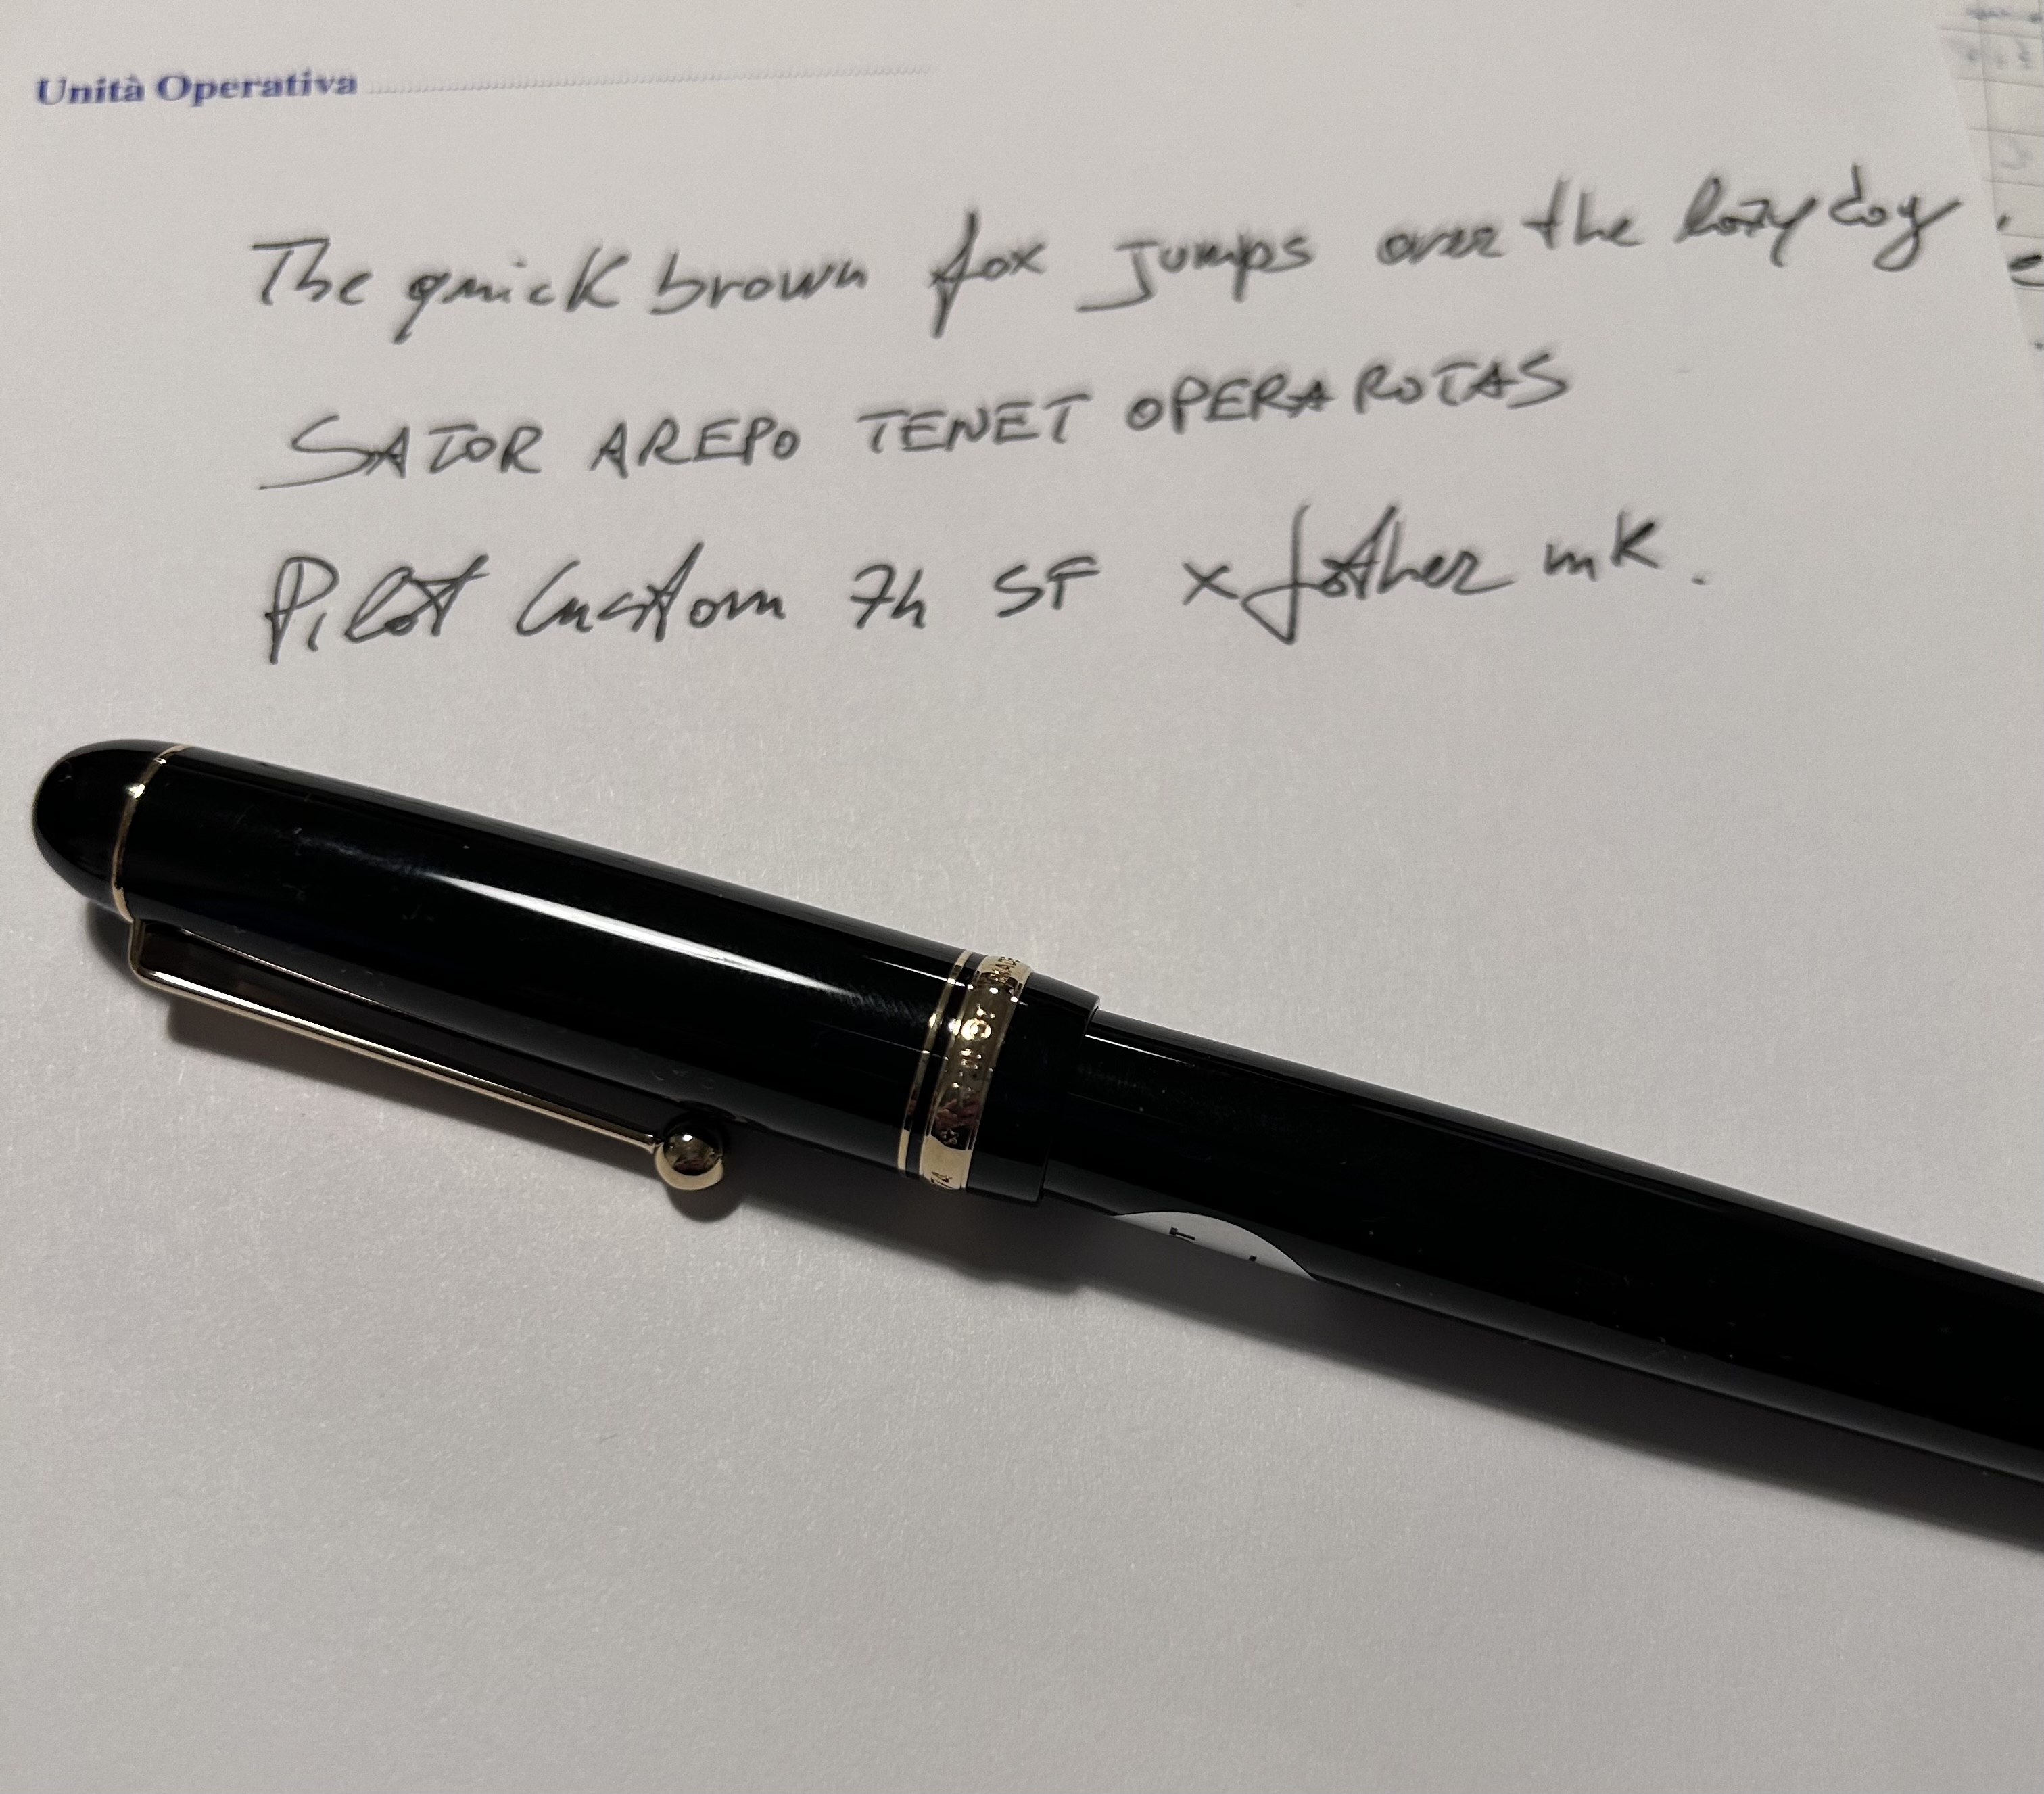 Unità Operativa
The quick brown fox jumps over the lazy dog.
SATOR AREPO TENET OPERA ROTAS
Pilot Custom 74 SF x father mk.
74